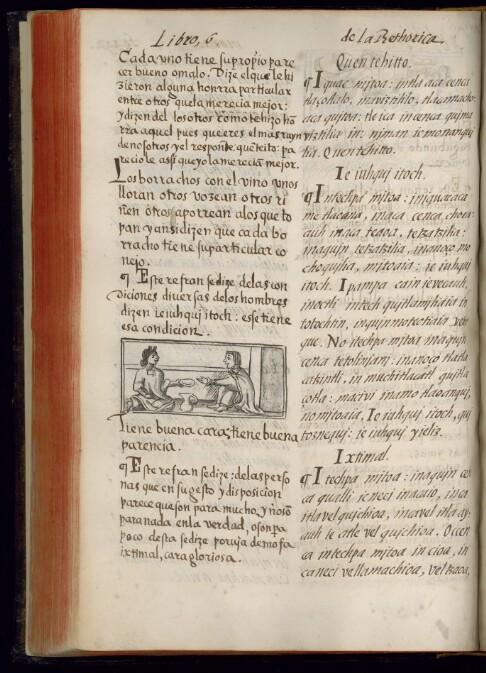 Libro, 6
Cada vno tiene supropio pare
cer bueno omalo. Dize el que le hi
zieron alguna honrra particular
entre otros que la merecia mejor:
y dizen del los otros como te hizo hō
rra aquel pues que eres el mas ruyn
de nosotros y el responde: quetcito: pa
reciole assi que yo la merecia mejor.
Los borrachos con el vino vnos
lloran otros vozean otros ri
ñen otros aporrean alos que to
pan y ansi dizen que cada bo
rracho tiene suparticular co
nejo.
¶ Este refran se dize delas con
diciones diversas delos hombres
dizen ie iuhqui itoch: ese tiene
esa condicion.
Tiene buena cara, tiene buena
parencia.
¶ Este refran se dize: delas perso
nas que en su gesto y disposicion
parece que son para mucho, y no sō
para nada en la verdad, o son pa
poco desta se dize por via de mofa
ixtimal, cara gloriosa.
de la Rethorica
Quen tehitto.
¶ Iquac mjtoa: intla aca cenca
tlaçotlalo, maviztililo, tlacamacho:
aca qujtoa: tle ica in cenca qujma
viztilia in: njman ic monanquj
lia. Quen tehitto.
Ie iuhquj itoch.
¶ Intechpa mjtoa: in
in aca cenca choca
auh in aca teaoa, tetzatzilia:
inaquin tetzatzilia, in anoço mo
choqujlia, mitoaia: ie iuhquj
itoch. Ipampa ca in ievecauh,
inochi intech qujtlamjliaia in
totochtin, in quinmoteotiaia veve
que. No itechpa mjtoa in aquin
cenca tetolinjanj: in anoço tlatla
catintli, in muchitlacatl qujtla
çotla: maçivi in amo tlaoanquj,
no mjtoaia. Ie iuhquj itoch, quj
toznequj: ie iuhquj yieliz.
Ixtimal.
¶ Itechpa mjtoa: in aquin cē
ca qualli ic neci in aço, in ca
itla vel qujchioa, in ca vel itla ay:
auh ie atle vel qujchioa. Occen
ca intechpa mjtoa in cioa, in
ca neci vellamachioa, vel tzaoa,